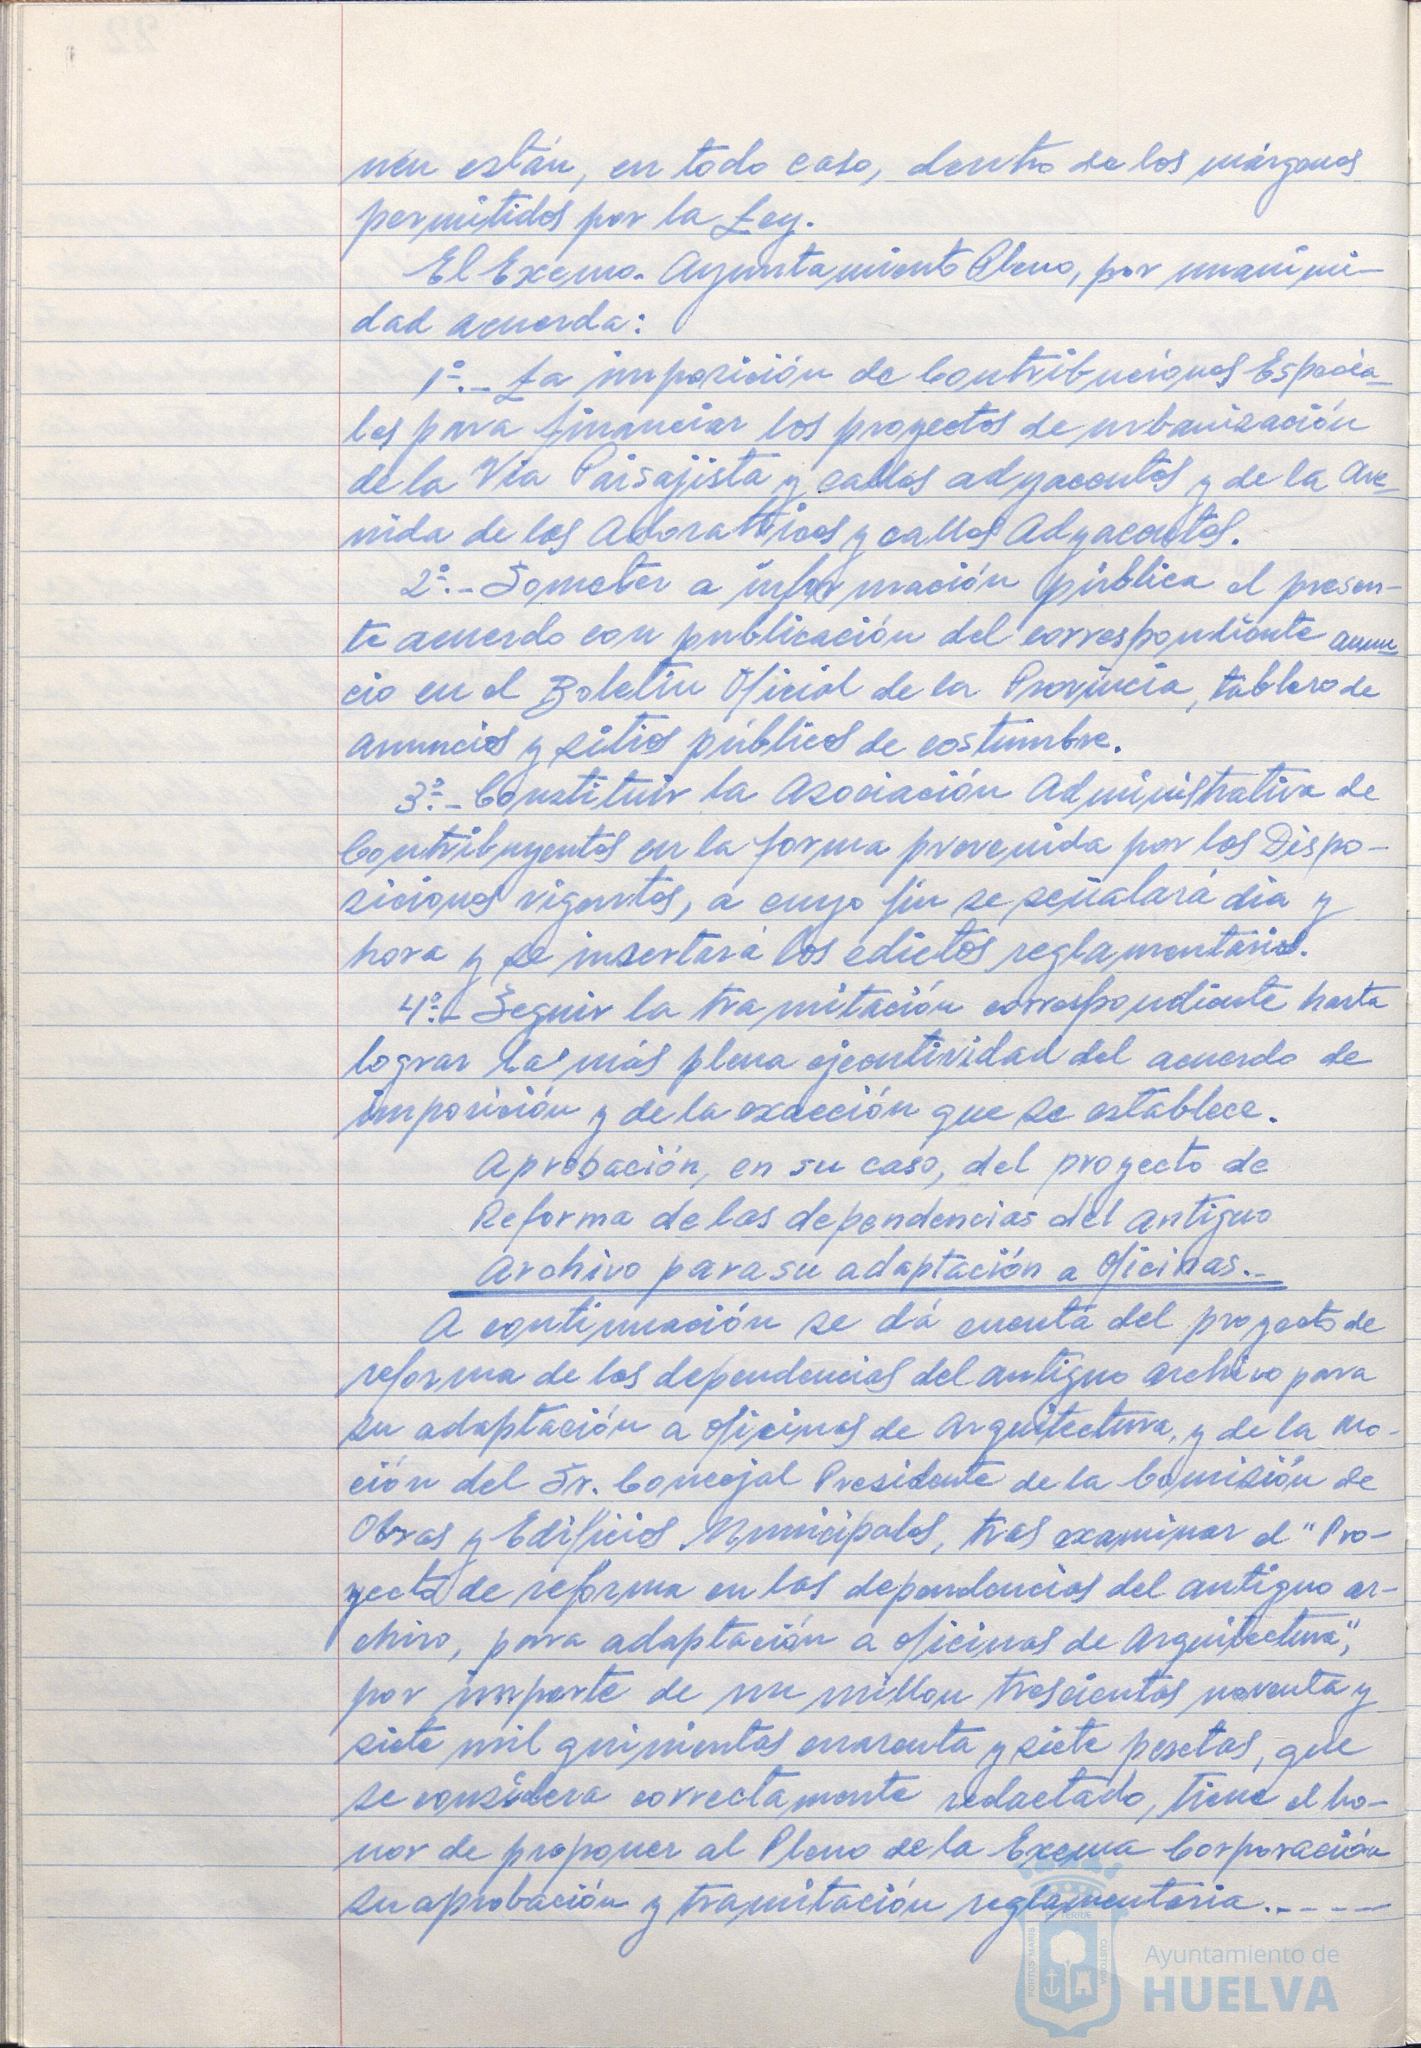 nen están, en todo caso, dentro de los márgenes
permitidos por la Ley.
El Excmo. Ayuntamiento Pleno, por unanimi-
dad acuerda:
1º.- La imposición de Contribuciones Especia-
les para financiar los proyectos de urbanización
de la Vía Paisajista y calles adyacentes y de la Ave-
nida de los Adoratrices y calles Adyacentes.
2º.- Someter a información pública el presen-
te acuerdo con publicación del correspondiente anun-
cio en el Boletín Oficial de la Provincia, tablero de
anuncios y sitios públicos de costumbre.
3º.- Constituir la Asociación Administrativa de
Contribuyentes en la forma prevenida por las Dispo-
siciones vigentes, a cuyo fin se señalará día y
hora y se insertará los edictos reglamentarios.
4º.- Seguir la tramitación correspondiente hasta
lograr la más plena ejecutividad del acuerdo de
imposición y de la exacción que se establece.
Aprobación, en su caso, del proyecto de
Reforma de las dependencias del antiguo
Archivo para su adaptación a oficinas.-
A continuación se dá cuenta del proyecto de
reforma de las dependencias del antiguo archivo para
su adaptación a oficinas de Arquitectura, y de la mo-
ción del Sr. Concejal Presidente de la Comisión de
Obras y Edificios Municipales, tras examinar el "Pro-
yecto de reforma en las dependencias del antiguo ar-
chivo, para adaptación a oficinas de Arquitectura",
por importe de un millon trescientas noventa y
siete mil quinientas cuarenta y siete pesetas, que
se considera correctamente redactado, tiene el ho-
nor de proponer al Pleno de la Excma Corporación
su aprobación y tramitación reglamentaria.----
PORTUS MARIS
ET TERRE
CUSTODIA
Ayuntamiento de
HUELVA